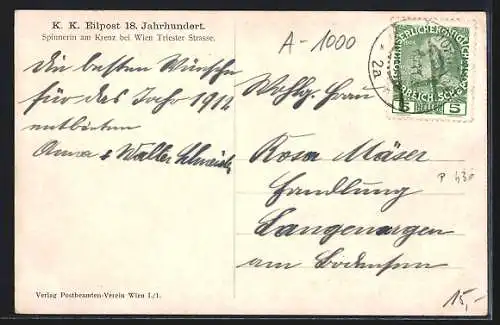 K. K. Eilpost 18. Jahrhundert.
Spinnerin am Kreuz bei Wien Triester Strasse.
A-1000
Die besten Wünsche
für das Jahr 1912
entbieten
Anna + Walter
Wohlg. Frau
Rosa Mäser
Handlung
Langenargen
am Bodensee
5 HELLER 5
2a
P 430
Verlag Postbeamten-Verein Wien I./1.
15,-